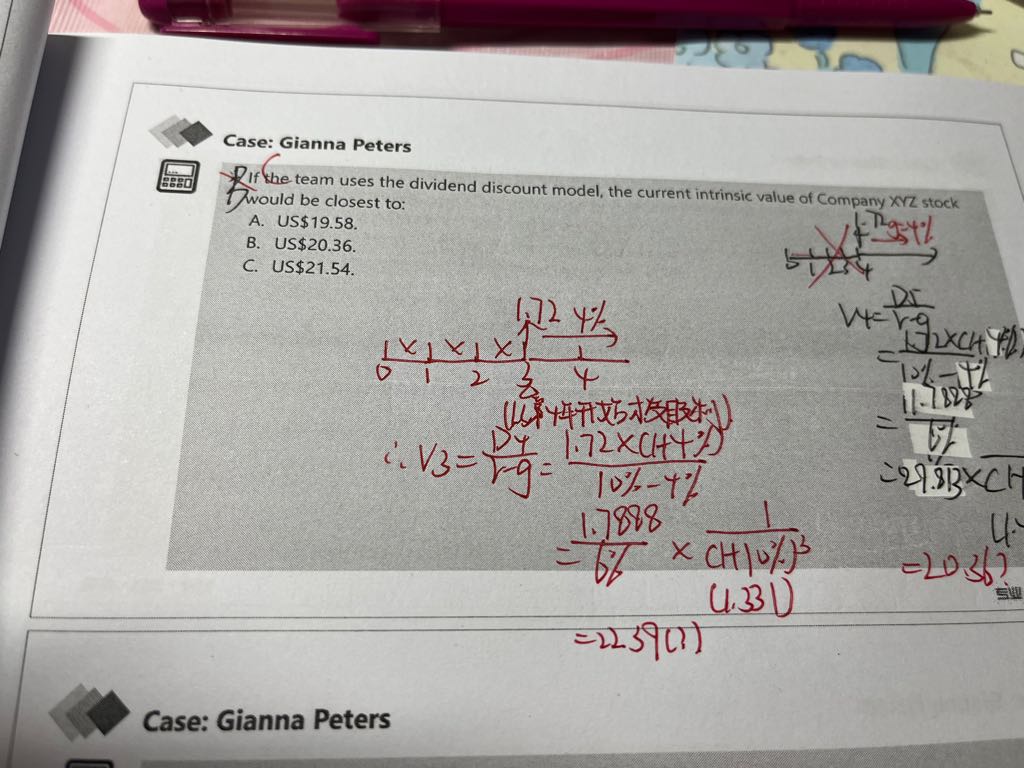 Case: Gianna Peters
If the team uses the dividend discount model, the current intrinsic value of Company XYZ stock
would be closest to:
A. US$19.58.
B. US$20.36.
C. US$21.54.
g=4%
0 1 2 3 4
V4 = D5
r-g
= 1.72×(1+4%)
10%-4%
= 1.7888
6%
= 29.813 × (1+
=20.36?
1.72 4%
× × ×
0 1 2 3 4
∴ V3 = D4 = 1.72×(1+4%)
r-g 10%-4%
= 1.7888 × 1
6% (1+10%)³
(1.331)
=22.39(?)
Case: Gianna Peters